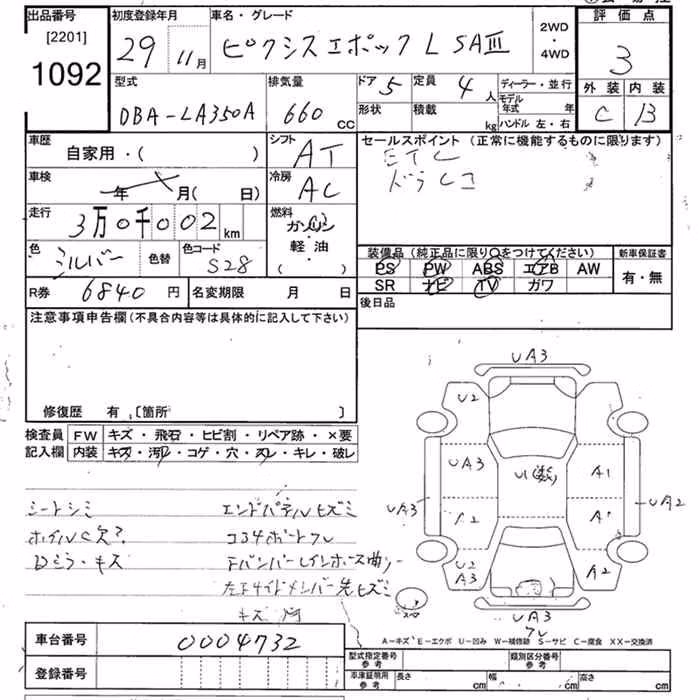 出品番号 初度登録年月 車名・グレード 評価点
[2201] 29 11月 ピクシスエポック L SAⅢ 2WD・4WD 3
1092 型式 排気量 ドア 5 定員 4人 ディーラー・並行 外装 内装
DBA-LA350A 660 CC 形状 積載 kg モデル年式 年 C B
ハンドル 左・右
車歴 シフト セールスポイント (正常に機能するものに限ります)
自家用・( ) AT ETC
車検 冷房 ドラレコ
年 月( 日) AC
走行 燃料
3万0千002km ガソリン
色 色替 色コード 軽・油 装備品 (純正品に限り○をつけてください) 新車保証書
シルバー S28 ( ) PS PW ABS エアB AW 有・無
R券 6840円 名変期限 月 日 SR ナビ TV ガワ
注意事項申告欄 (不具合内容等は具体的に記入して下さい) 後日品
修復歴 有 〔箇所 〕
検査員 FW キズ・飛石・ヒビ割・リペア跡・×要
記入欄 内装 キズ・汚レ・コゲ・穴・スレ・キレ・破レ
UA3
U2
UA3 U1 A1
UA3 A2 A1 UA2
U2
A3 A2
UA3
シートシミ
ホイルC欠?
Dミラ・キズ
A-キズ E-エクボ U-凹み W-補修跡 S-サビ C-腐食 XX-交換済
車台番号 0004732 型式指定番号 参考 類別区分番号 参考
登録番号 車庫証明用 参考 長さ cm 幅 cm 高さ cm